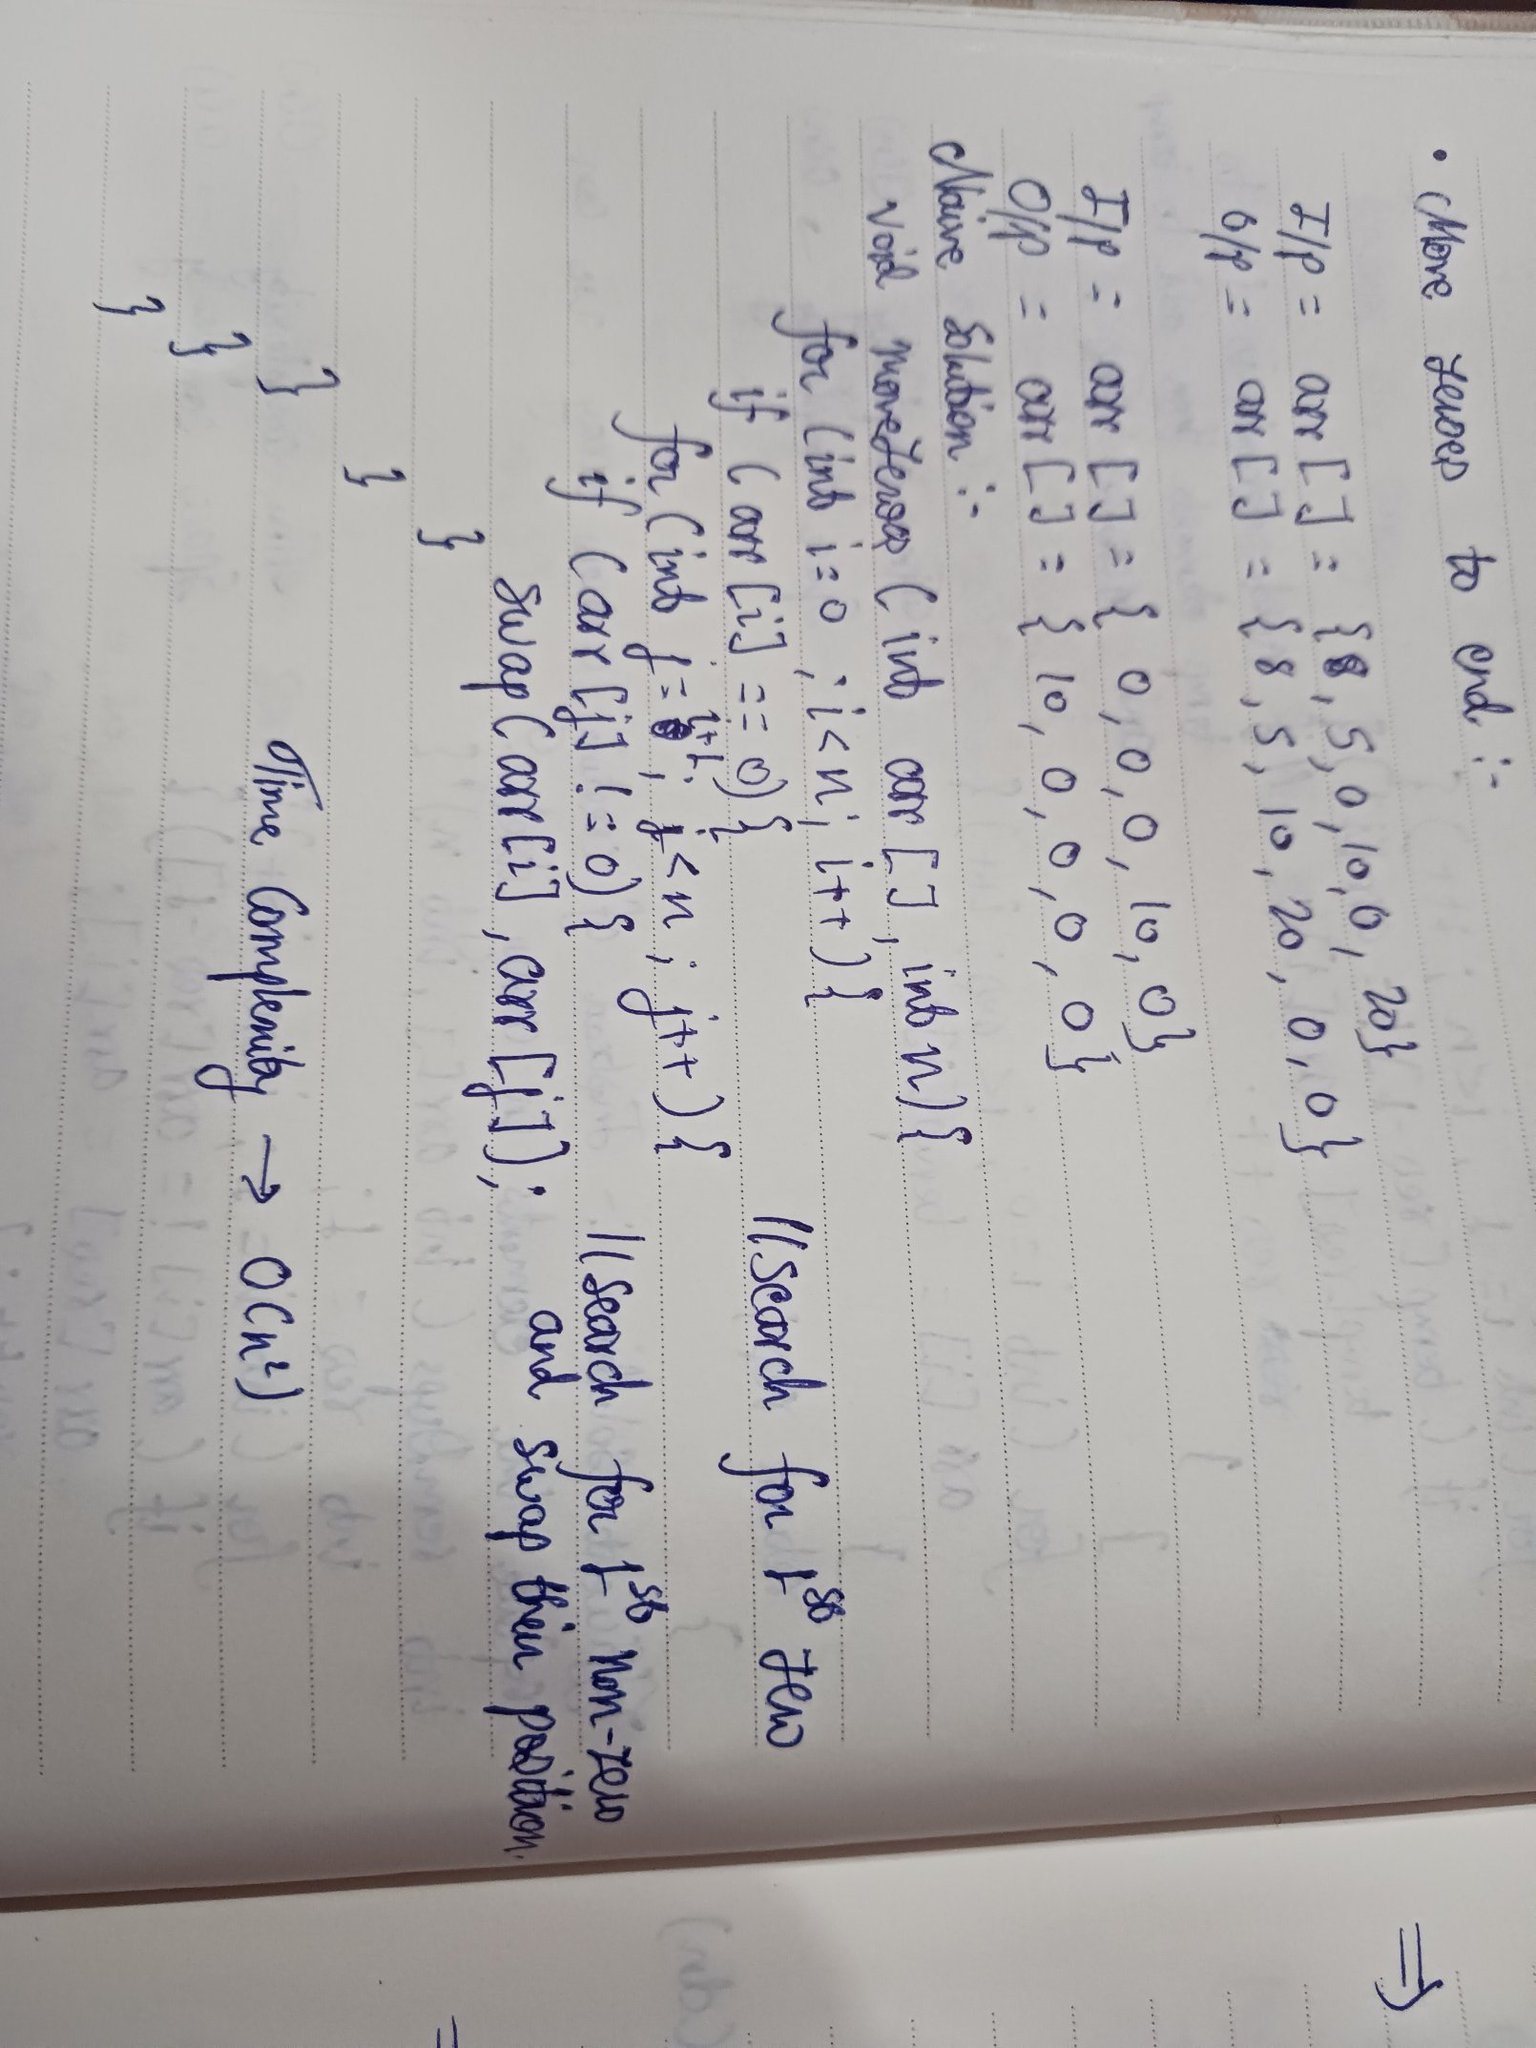 • Move zeroes to end :-
I/p = arr[] = {8, 5, 0, 10, 0, 20}
O/p = arr[] = {8, 5, 10, 20, 0, 0}
I/p = arr[] = { 0, 0, 0, 10, 0}
O/p = arr[] = { 10, 0, 0, 0, 0}
Naive Solution :-
void moveZeroes ( int arr [], int n) {
for (int i=0 ; i<n; i++) {
if ( arr [i] == 0) { //search for 1st zero
for (int j= i+1; j<n ; j++) {
if (arr [j] != 0) { //search for 1st non-zero
swap( arr[i] , arr [j]); and swap their position.
}
}
}
}
}
Time Complexity → O(n²)
⇒